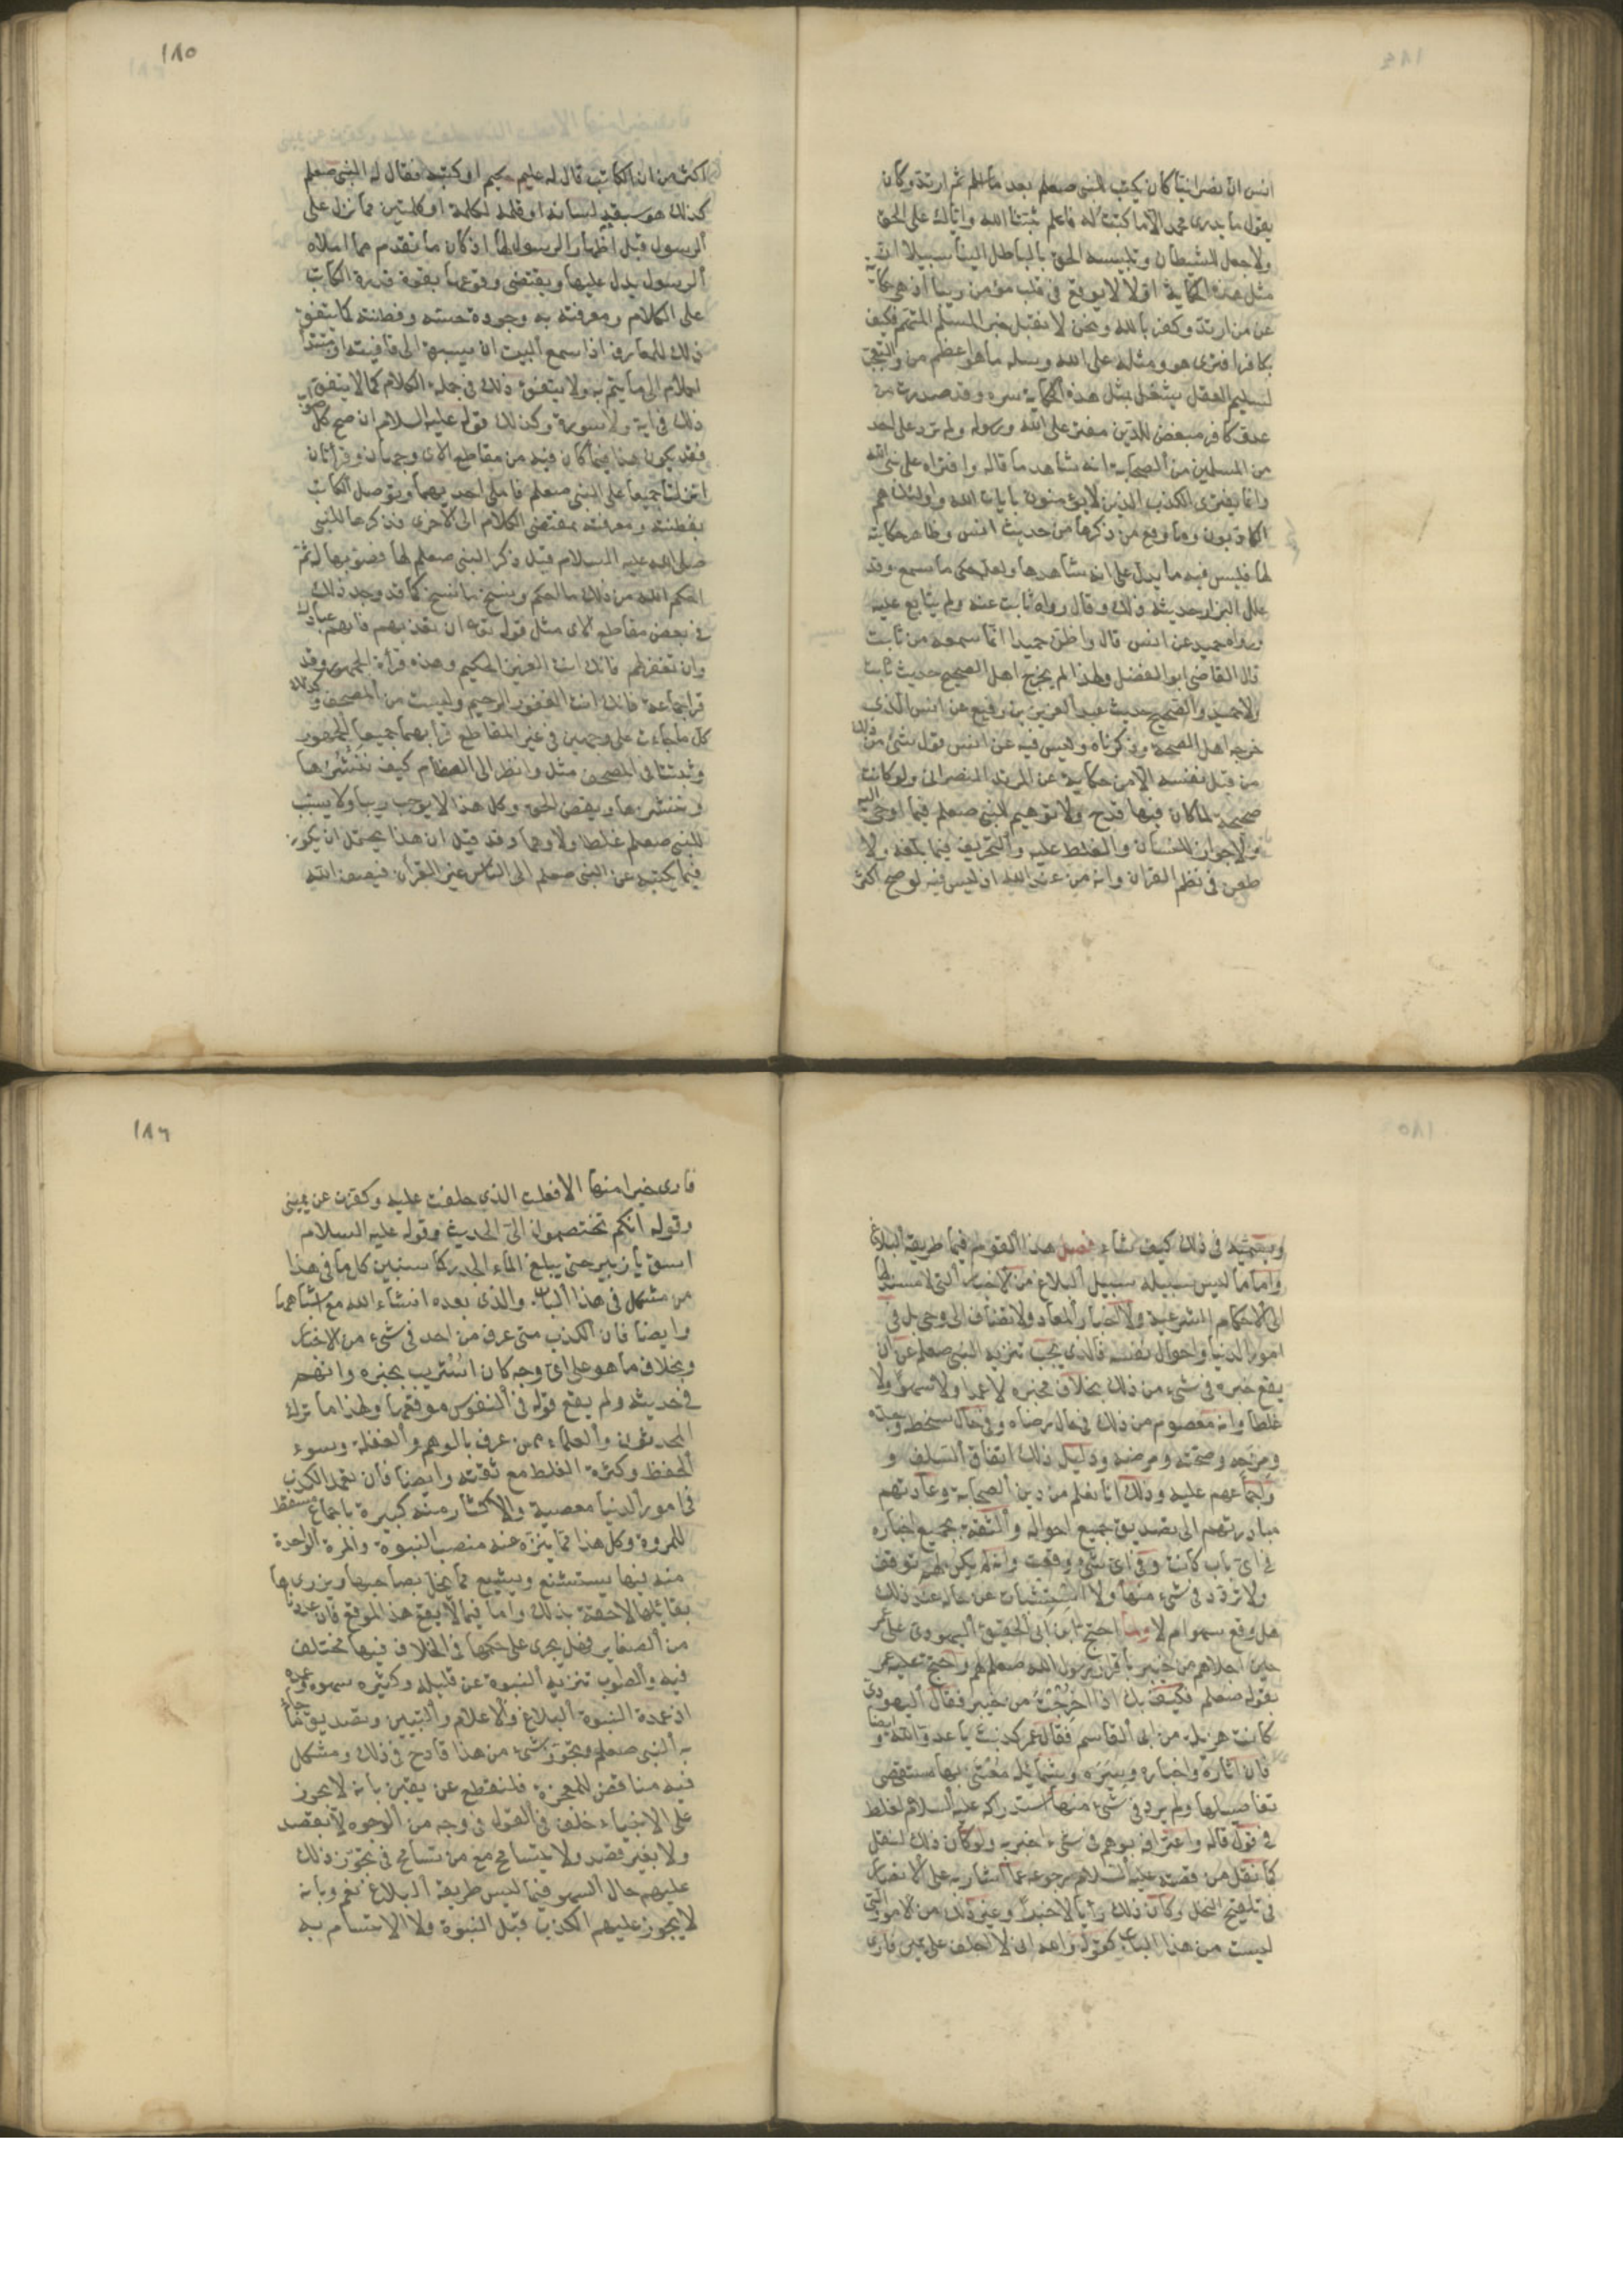 انس ان نصرانيا كان يكتب للنبي صعلم بعد ما اسلم ثم ارتد وكان
يقول ما يدرى محمد الا ما كتبت له فاعلم ثبتنا الله واياك على الحق
ولا جعل للشيطان وتلبيسه الحق بالباطل الينا سبيلا ان
مثل هذه الحكاية اولا لا يوقع فى قلب مؤمن ريبا اذ هى حكاية
عن من ارتد وكفر بالله ونحن لا نقبل خبر المسلم المتهم فكيف
بكافر افترى هو ومثله على الله ورسله ما هو اعظم من والتعجب
لسليم العقل يشغل بمثل هذه الحكاية سره وقد صدرت من
عدو كافر مبغض للدين مفتر على الله ورسوله ولم ترد على احد
من المسلمين من الصحابة انه شاهد ما قاله وافتراه على نبى الله
وانما يفترى الكذب الذين لا يؤمنون بايات الله واولئك هم
الكاذبون وما وقع من ذكرها من حديث انس وظاهر حكايته
لها فليس فيه ما يدل على انه شاهدها ولعله حكى ما سمع وقد
علل البزار حديثه ذلك وقال رواه ثابت عنه ولم يتابع عليه
ورواه حميد عن انس قال واظن حميدا انما سمعه من ثابت
قال القاضى ابو الفضل ولهذا لم يخرج اهل الصحيح حديث ثابت
ولا حميد والصحيح حديث عبد العزيز بن رفيع عن انس الذى
خرجه اهل الصحة وذكرناه وليس فيه عن انس قول بشئ من ذلك
من قبل نفسه الا من حكاية عن المرتد النصرانى ولو كانت
صحيحة لما كان فيها قدح ولا توهيم للنبى صعلم فيما اوحى اليه
ولا جواز للنسيان والغلط عليه والتحريف فيما بلغه ولا
طعن فى نظم القران وانه من عند الله اذ ليس فيه لو صح اكثر
١٨٥
اكثر من ان الكاتب قال له عليم حكيم او كتبه فقال له النبى صعلم
كذلك هو سبقه لسانه او قلمه لكلمة او كلمتين مما نزل على
الرسول قبل اظهار الرسول لها اذ كان ما تقدم مما املاه
الرسول يدل عليها ويقتضى وقوعها بقوة قدرة الكاتب
على الكلام ومعرفته به وجودة حسه وفطنته كما يتفق
ذلك للعارف اذا سمع البيت ان يسبق الى قافيته او مبتدا
الكلام الى ما يتم به ولا يتفق ذلك فى جملة الكلام كما لا يتفق
ذلك فى اية ولا سورة وكذلك قوله عليه السلام ان صح كل صواب
فقد يكون هذا فيما كان فيه من مقاطع الاى وجهان وقراتان
انزلتا جميعا على النبى صعلم فاملى احديهما وتوصل الكاتب
بفطنته ومعرفته بمقتضى الكلام الى الاخرى فذكرها للنبى
صلى الله عليه السلام قبل ذكر النبى صعلم لها فصوبها له ثم
احكم الله من ذلك ما احكم ونسخ ما نسخ كما قد وجد ذلك
فى بعض مقاطع الاى مثل قوله تع ان تعذبهم فانهم عبادك
وان تغفر لهم فانك انت العزيز الحكيم وهذه قراة الجمهور وقد
قرا جماعة فانك انت الغفور الرحيم وليست من المصحف وكذلك
كل ما جاءت على وجهين فى غير المقاطع قرا بهما جميعا الجمهور
وثبتتا فى المصحف مثل وانظر الى العظام كيف ننشرها
وننشزها ويقض الحق وكل هذا لا يوجب ريبا ولا يسبب
للنبى صعلم غلطا ولا وهما وقد قيل ان هذا يحتمل ان يكون
فيما يكتبه عن النبى صعلم الى الناس غير القرأن فيصف الله
ويسميه فى ذلك كيف شاء فصل هذا القول فيما طريقه البلاغ
واما ما ليس سبيله سبيل البلاغ من الاخبار التى لا مستند لها
الى الاحكام الشرعية ولا اخبار المعاد ولا تضاف الى وحى بل فى
امور الدنيا واحوال نفسه فالذى يجب تنزيه النبى صعلم عن ان
يقع خبره فى شىء من ذلك بخلاف مخبره لا عمدا ولا سهوا ولا
غلطا وانه معصوم من ذلك فى حال رضاه وفى حال سخطه وجده
ومزحه وصحته ومرضه ودليل ذلك اتفاق السلف و
اجماعهم عليه وذلك انا نعلم من دين الصحابة وعادتهم
مبادرتهم الى تصديق جميع احواله والثقة بجميع اخباره
فى اى باب كانت وفى اى شىء وقعت وانه لم يكن لهم توقف
ولا تردد فى شىء منها ولا استثبات عن حاله عند ذلك
هل وقع سهوا م لا ولما احتج ابن ابى الحقيق اليهودى على عمر
حين اجلاهم من خيبر باقرار رسول الله صعلم لهم واحتج عليه عمر
بقوله صعلم فكيف بك اذا اخرجت من خيبر فقال اليهودى
كانت هزيلة من ابى القاسم فقال عمر كذبت يا عدو الله وايضا
فان اثاره واخباره وسيره وشمائله معتنى بها مستقصى
تفاصيلها ولم يرد فى شىء منها استدراكه عليه السلام لغلط
فى قول قاله واعترافه بوهم فى شىء اخبر به ولو كان ذلك لنقل
كما نقل من قصته عليه السلام رجوعه عما اشار به على الانصار
فى تلقيح النخل وكان ذلك رأيا لا خبرا وغير ذلك من الامور التى
ليست من هذا الباب كقوله والله انى لا احلف على يمين فارى
١٨٦
فارى خيرا منها الا فعلت الذى حلفت عليه وكفرت عن يمينى
وقوله انكم تختصمون الى الحديث وقوله عليه السلام
اسق يا زبير حتى يبلغ الماء الجدر كما سنبين كل ما فى هذا
من مشكل فى هذا الباب والذى بعده انشاء الله مع اشباههما
وايضا فان الكذب متى عرف من احد فى شىء من الاخبار
بخلاف ما هو على اى وجه كان استريب بخبره واتهم
فى حديثه ولم يقع قوله فى النفوس موقعها ولهذا ما ترك
المحدثون والعلماء عمن عرف بالوهم والغفلة وسوء
الحفظ وكثرة الغلط مع ثقته وايضا فان تعمد الكذب
فى امور الدنيا معصية والاكثار منه كبيرة باجماع مسقط
للمروة وكل هذا مما ينزه عنه منصب النبوة والمرة الواحدة
منه فيها يستشنع ويشيع مما يخل بصاحبها ويزرى بها
بقائلها لاحقة بذلك واما فيما لا يقع هذا الموقع فان عددنا
من الصغاير فهل يجرى على حكمها فى الخلاف فيها مختلف
فيه والصواب تنزيه النبوة عن قليله وكثيره سهوه وعمده
اذ عمدة النبوة البلاغ والاعلام والتبيين وتصديق ما جاء
به النبى صعلم وتجويز شىء من هذا قادح فى ذلك ومشكل
فيه مناقض للمعجزة فلنقطع عن يقين بانه لا يجوز
على الانبياء خلف فى القول فى وجه من الوجوه لا بقصد
ولا بغير قصد ولا يتسامح مع من تسامح فى تجويز ذلك
عليهم حال السهو فيما ليس طريقه البلاغ نعم وبانه
لا يجوز عليهم الكذب قبل النبوة ولا الاتسام به